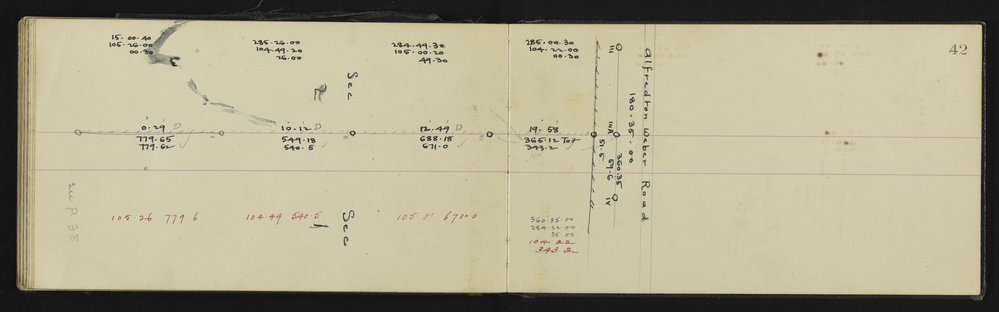 42
15.00.40
105.26.00
00.30
285.26.00
104.49.20
26.00
284.49.30
105.00.20
49.30
285.00.30
104.22.00
00.30
Sec
2
0.29 D
779.65
779.62
10.12 D
549.18
540.5
12.49 D
688.18
671.0
19.58
365.12 Tot
343.2
III
10A
51.5
360.35
59.6
IV
180.35.00
Alfredton Weber Road
see p 38
105.26 779 6
104.49 540.5
Sec
1
671.0
360.35.00
284.22.00
35 00
104 22
343 2